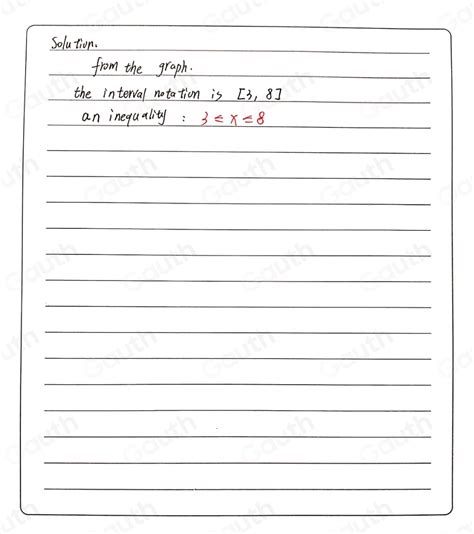 Solution.
from the graph.
the interval notation is [3, 8]
an inequality : 3 ≤ x ≤ 8
Gauth